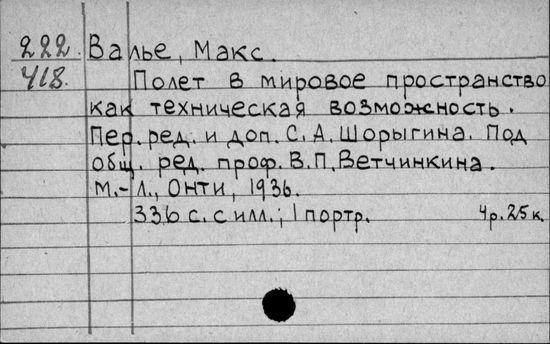 222 Валье, Макс.
418. Полет в мировое пространство
как техническая возможность.
Пер. ред. и доп. С. А. Шорыгина. Под
общ. ред. проф. В. П. Ветчинкина.
М.-Л., ОНТИ, 1936.
336 с. с илл.; 1 портр. 4р. 25 к.